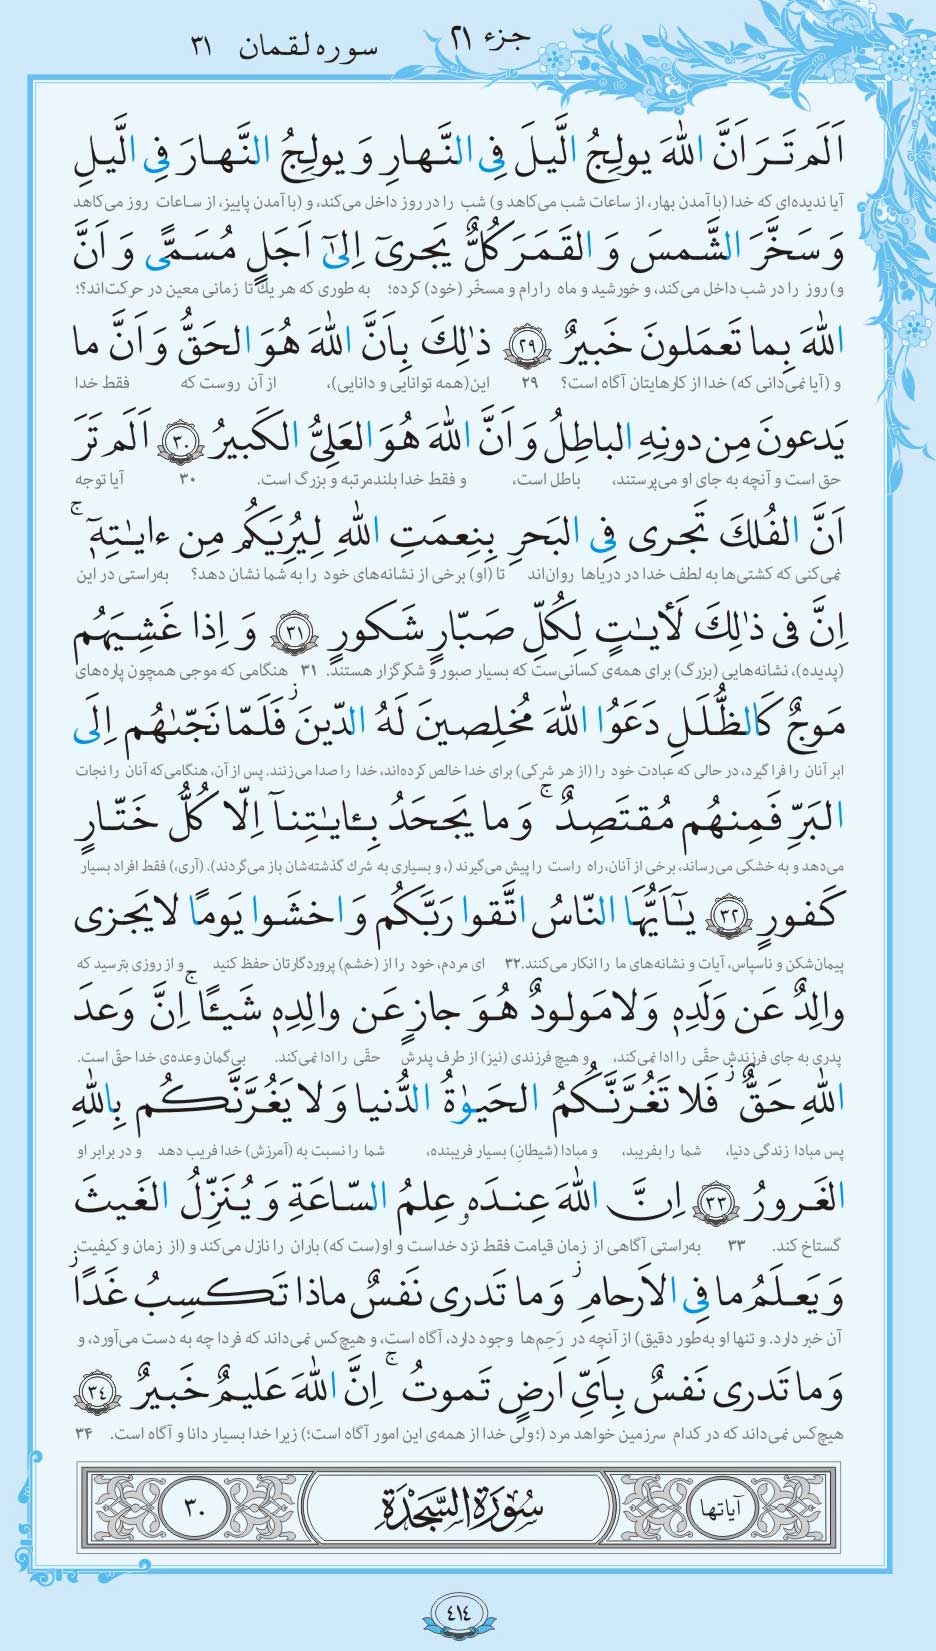 جزء ۲۱
سوره لقمان ۳۱
اَلَم تَرَ اَنَّ اللّٰهَ یولِجُ الَّیلَ فِی النَّهارِ وَ یولِجُ النَّهارَ فِی الَّیلِ
آیا ندیده‌ای که خدا (با آمدن بهار، از ساعات شب می‌کاهد و) شب را در روز داخل می‌کند، و (با آمدن پاییز، از ساعات روز می‌کاهد
وَ سَخَّرَ الشَّمسَ وَ القَمَرَ کُلٌّ یَجری اِلیٰ اَجَلٍ مُسَمًّی وَ اَنَّ
و) روز را در شب داخل می‌کند، و خورشید و ماه را رام و مسخّر (خود) کرده؛ به طوری که هر یك تا زمانی معین در حرکت‌اند؟؛
اللّٰهَ بِما تَعمَلونَ خَبیرٌ ﴿۲۹﴾ ذٰلِكَ بِاَنَّ اللّٰهَ هُوَ الحَقُّ وَ اَنَّ ما
و (آیا نمی‌دانی که) خدا از کارهایتان آگاه است؟ ۲۹ این(همه توانایی و دانایی)، از آن روست که فقط خدا
یَدعونَ مِن دونِهِ الباطِلُ وَ اَنَّ اللّٰهَ هُوَ العَلِیُّ الکَبیرُ ﴿۳۰﴾ اَلَم تَرَ
حق است و آنچه به جای او می‌پرستند، باطل است، و فقط خدا بلندمرتبه و بزرگ است. ۳۰ آیا توجه
اَنَّ الفُلكَ تَجری فِی البَحرِ بِنِعمَتِ اللّٰهِ لِیُرِیَکُم مِن ءایٰتِهٖٓ ۚ
نمی‌کنی که کشتی‌ها به لطف خدا در دریاها روان‌اند تا (او) برخی از نشانه‌های خود را به شما نشان دهد؟ به‌راستی در این
اِنَّ فی ذٰلِكَ لَأٰیٰتٍ لِکُلِّ صَبّارٍ شَکورٍ ﴿۳۱﴾ وَ اِذا غَشِیَهُم
(پدیده)، نشانه‌هایی (بزرگ) برای همه‌ی کسانی‌ست که بسیار صبور و شکرگزار هستند. ۳۱ هنگامی که موجی همچون پاره‌های
مَوجٌ کَالظُّلَلِ دَعَوُا اللّٰهَ مُخلِصینَ لَهُ الدّینَ ۚ فَلَمّا نَجّىٰهُم اِلَی
ابر آنان را فرا گیرد، در حالی که عبادت خود را (از هر شرکی) برای خدا خالص کرده‌اند، خدا را صدا می‌زنند. پس از آن، هنگامی‌که آنان را نجات
البَرِّ فَمِنهُم مُقتَصِدٌ ۚ وَ ما یَجحَدُ بِـٔایٰتِنآ اِلّا کُلُّ خَتّارٍ
می‌دهد و به خشکی می‌رساند، برخی از آنان، راه راست را پیش می‌گیرند (، و بسیاری به شرك گذشته‌شان باز می‌گردند). (آری،) فقط افراد بسیار
کَفورٍ ﴿۳۲﴾ یٰٓاَیُّهَا النّاسُ اتَّقوا رَبَّکُم وَ اخشَوا یَومًا لا یَجزی
پیمان‌شکن و ناسپاس، آیات و نشانه‌های ما را انکار می‌کنند.۳۲ ای مردم، خود را از (خشم) پروردگارتان حفظ کنید و از روزی بترسید که
والِدٌ عَن وَلَدِهٖ وَ لا مَولودٌ هُوَ جازٍ عَن والِدِهٖ شَیـًٔا ۚ اِنَّ وَعدَ
پدری به جای فرزندش حقّی را ادا نمی‌کند، و هیچ فرزندی (نیز) از طرف پدرش حقّی را ادا نمی‌کند. بی‌گمان وعده‌ی خدا حقّ است.
اللّٰهِ حَقٌّ ۖ فَلا تَغُرَّنَّکُمُ الحَیوٰةُ الدُّنیا وَ لا یَغُرَّنَّکُم بِاللّٰهِ
پس مبادا زندگی دنیا، شما را بفریبد، و مبادا (شیطان) بسیار فریبنده، شما را نسبت به (آمرزش) خدا فریب دهد و در برابر او
الغَرورُ ﴿۳۳﴾ اِنَّ اللّٰهَ عِندَهٗ عِلمُ السّاعَةِ وَ یُنَزِّلُ الغَیثَ
گستاخ کند. ۳۳ به‌راستی آگاهی از زمان قیامت فقط نزد خداست و او(ست که) باران را نازل می‌کند و (از زمان و کیفیت
وَ یَعلَمُ ما فِی الاَرحامِ ۖ وَ ما تَدری نَفسٌ ماذا تَکسِبُ غَدًا ۖ
آن خبر دارد. و تنها او به‌طور دقیق) از آنچه در رَحِم‌ها وجود دارد، آگاه است، و هیچ‌کس نمی‌داند که فردا چه به دست می‌آورد، و
وَ ما تَدری نَفسٌ بِاَیِّ اَرضٍ تَموتُ ۚ اِنَّ اللّٰهَ عَلیمٌ خَبیرٌ ﴿۳۴﴾
هیچ‌کس نمی‌داند که در کدام سرزمین خواهد مرد (؛ ولی خدا از همه‌ی این امور آگاه است؛) زیرا خدا بسیار دانا و آگاه است. ۳۴
آیاتها سُورَةُ السَّجْدَةِ ۳۰
۴۱۴